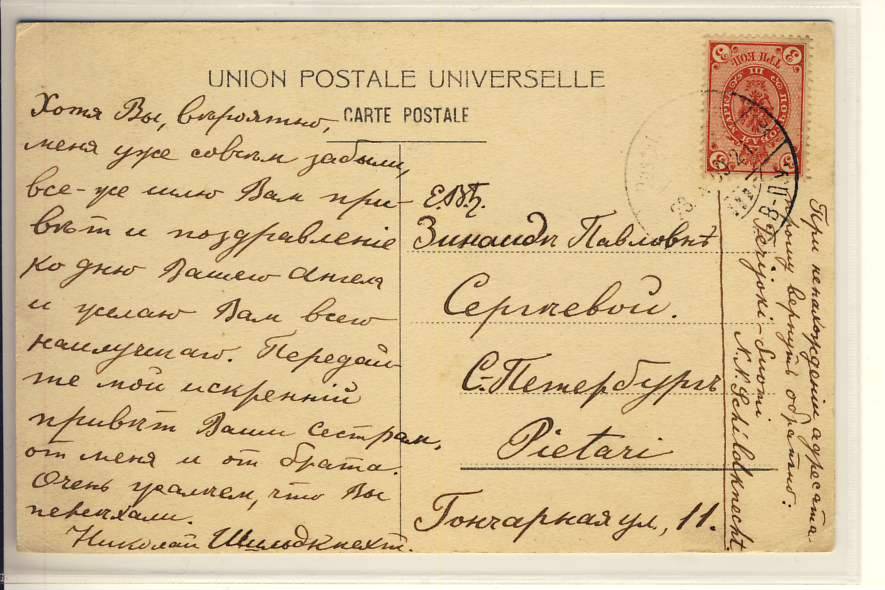 UNION POSTALE UNIVERSELLE
CARTE POSTALE
Хотя Вы, вѣроятно,
меня уже совсѣм забыли,
все-же шлю Вам при-
вѣт и поздравленіе
ко дню Вашего Ангела
и желаю Вам всего
наилучшаго. Передай-
те мой искренній
привѣт Вашим сестрам,
от меня и от брата.
Очень жалѣем, что Вы
переѣхали.
Николай Шильдкнехт.
Е.В.Б.
Зинаидѣ Павловнѣ
Сергѣевой.
С-Петербургъ
Pietari
Гончарная ул, 11.
При ненахожденіи адресата
прошу вернуть обратно:
Terijoki - Suomi
N.N. Schildknecht.
3
3
3
3